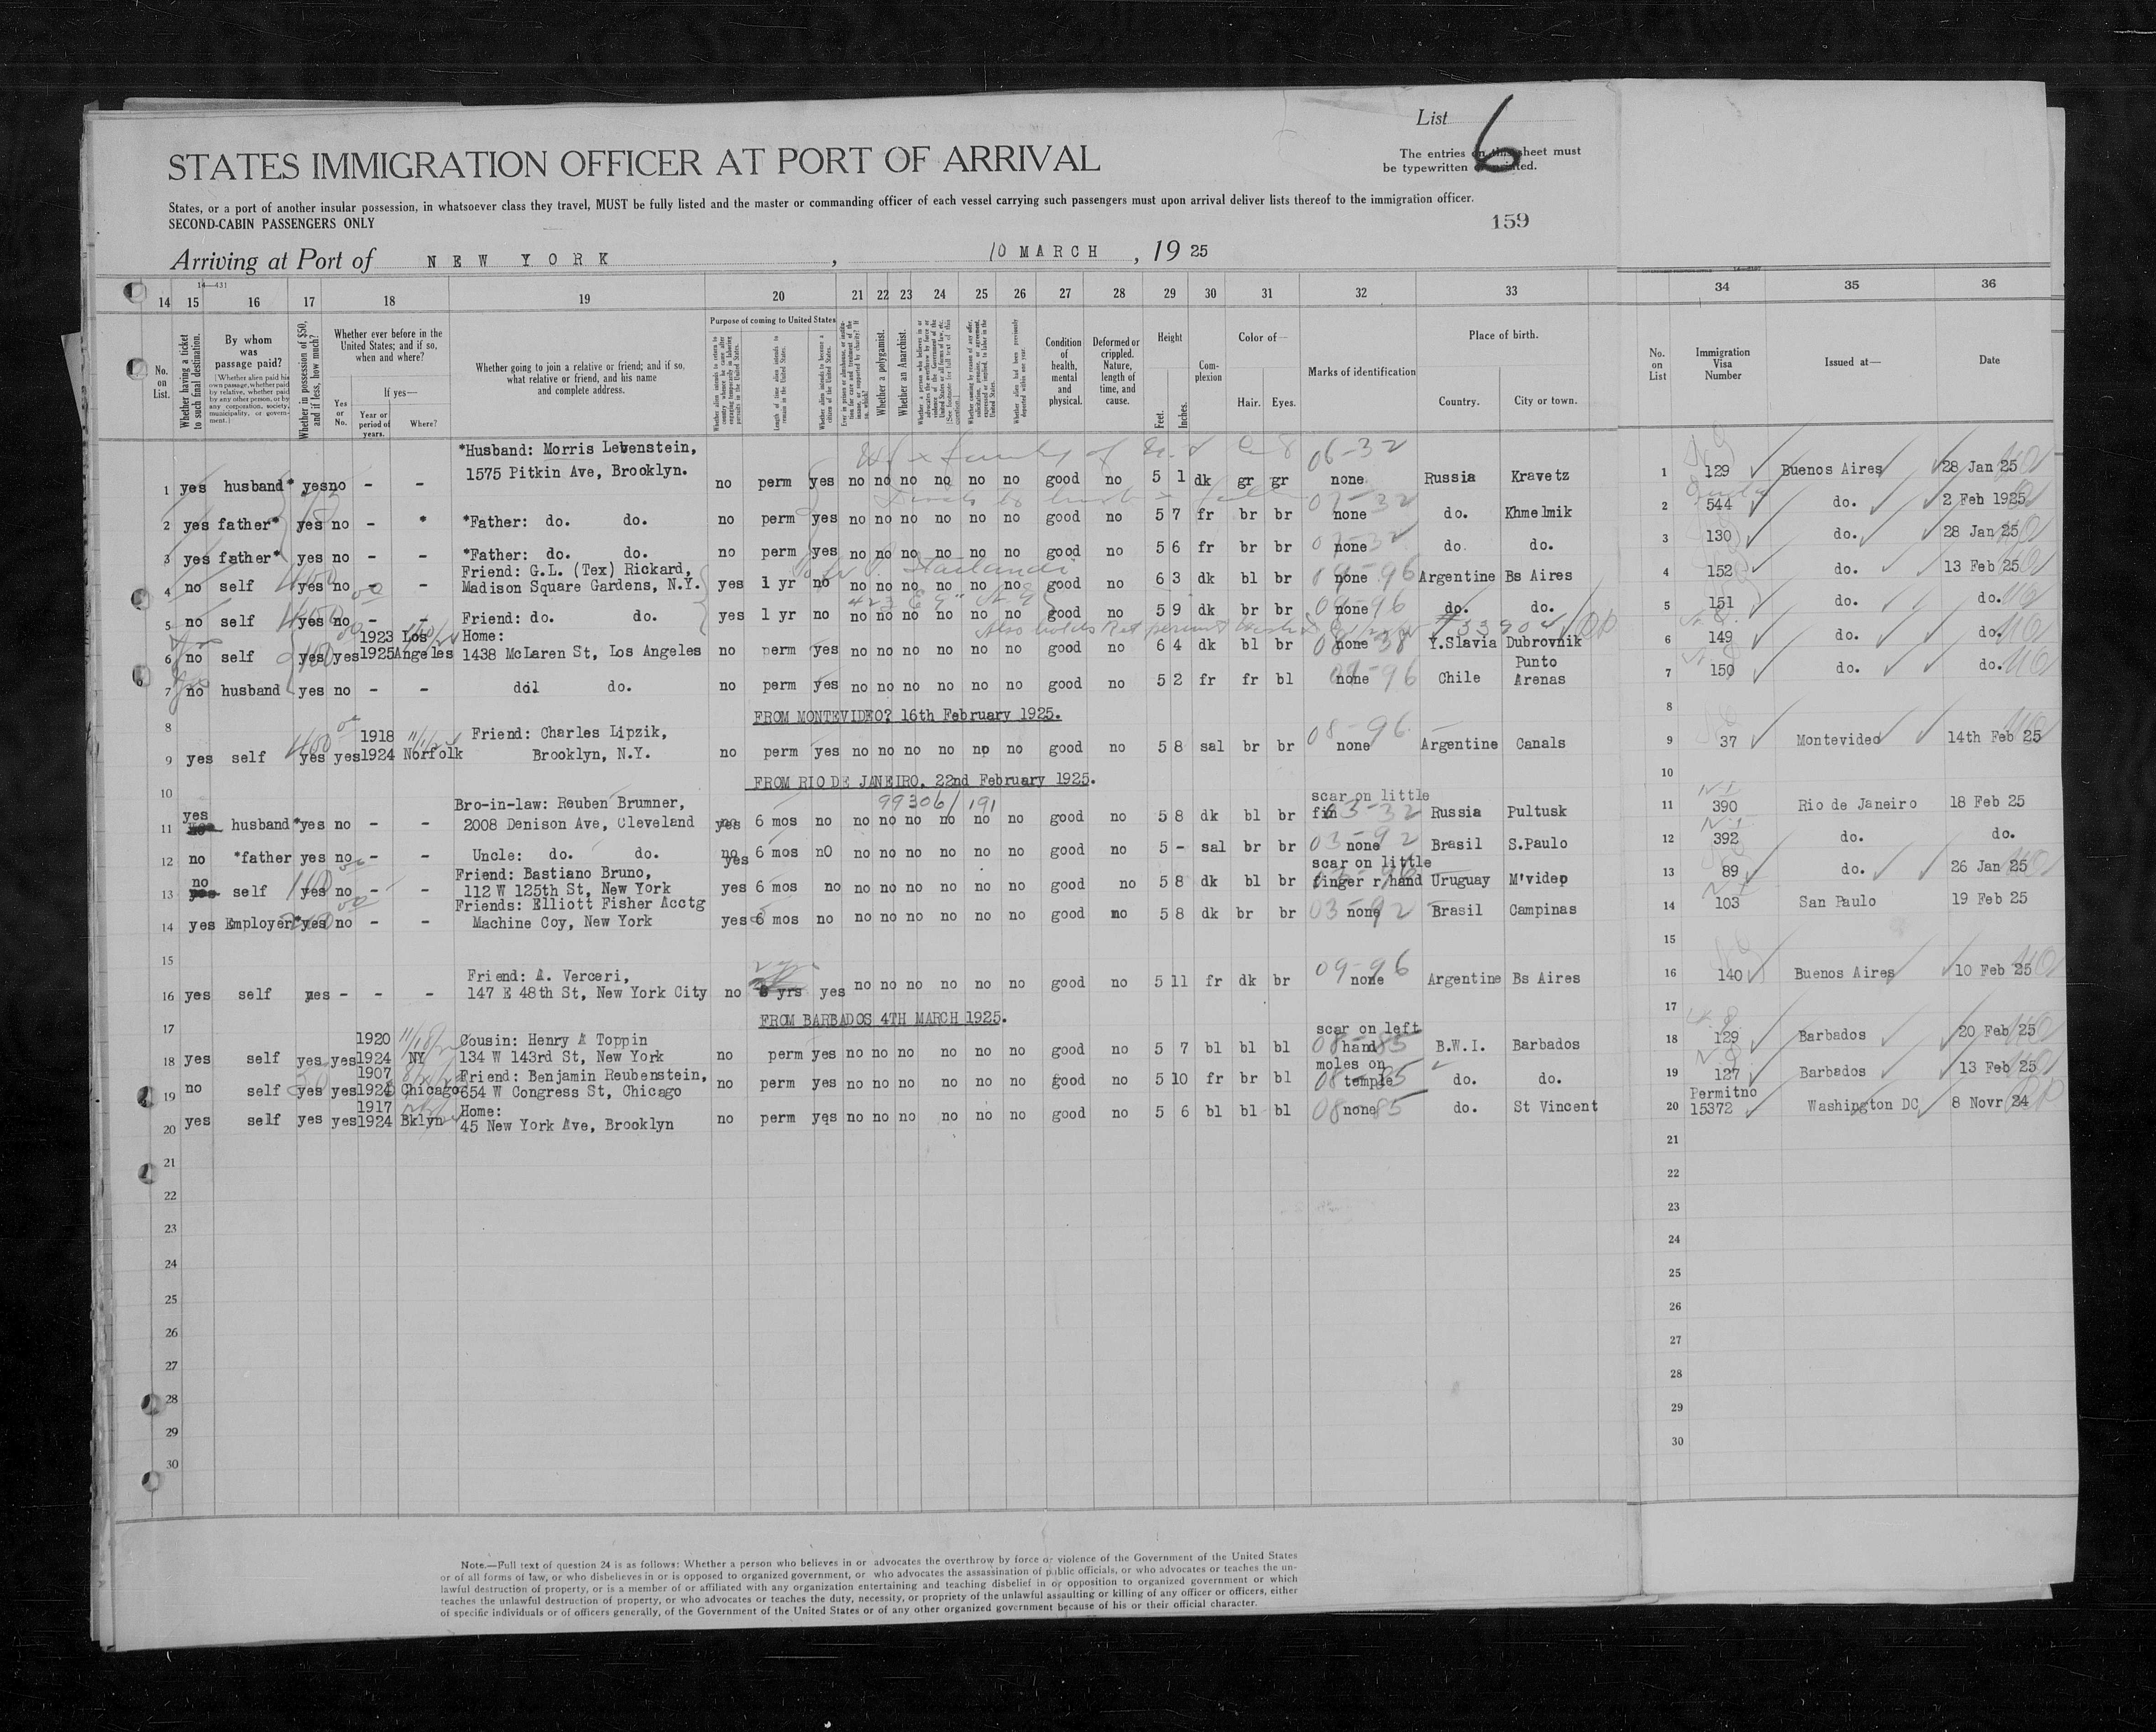 List 6
STATES IMMIGRATION OFFICER AT PORT OF ARRIVAL
The entries on this sheet must
be typewritten or printed.
States, or a port of another insular possession, in whatsoever class they travel, MUST be fully listed and the master or commanding officer of each vessel carrying such passengers must upon arrival deliver lists thereof to the immigration officer.
SECOND-CABIN PASSENGERS ONLY
159
Arriving at Port of NEW YORK, 10 MARCH, 19 25
14—431
14 15 16 17 18 19 20 21 22 23 24 25 26 27 28 29 30 31 32 33 34 35 36
No. on List.
Whether having a ticket to such final destination.
By whom was passage paid?
[Whether alien paid his own passage, whether paid by relative, whether paid by any other person, or by any corporation, society, municipality, or government.]
Whether in possession of $50, and if less, how much?
Whether ever before in the United States; and if so, when and where?
Yes or No.
If yes—
Year or period of years.
Where?
Whether going to join a relative or friend; and if so, what relative or friend, and his name and complete address.
Purpose of coming to United States
Length of time alien intends to remain in the United States.
Whether alien intends to become a citizen of the United States.
Whether a polygamist.
Whether an Anarchist.
Condition of health, mental and physical.
Deformed or crippled. Nature, length of time, and cause.
Height
Feet. Inches.
Complexion
Color of—
Hair. Eyes.
Marks of identification
Place of birth.
Country. City or town.
No. on List
Immigration Visa Number
Issued at—
Date
*Husband: Morris Lebenstein,
1 yes husband* yes no - - 1575 Pitkin Ave, Brooklyn. no perm yes no no no no no no good no 5 1 dk gr gr none 06-32 Russia Kravetz 1 129 Buenos Aires 28 Jan 25
2 yes father* yes no - * *Father: do. do. no perm yes no no no no no no good no 5 7 fr br br none do. Khmelmik 2 544 do. 2 Feb 1925
3 yes father* yes no - - *Father: do. do. no perm yes no no no no no no good no 5 6 fr br br none do. do. 3 130 do. 28 Jan 25
Friend: G.L. (Tex) Rickard,
4 no self yes no - - Madison Square Gardens, N.Y. yes 1 yr no no no no no no no good no 6 3 dk bl br none Argentine Bs Aires 4 152 do. 13 Feb 25
5 no self yes no - - Friend: do. do. yes 1 yr no no no no no no no good no 5 9 dk br br none 09-96 do. do. 5 151 do. do.
1923 Los Home:
6 no self yes yes 1925 Angeles 1438 McLaren St, Los Angeles no perm yes no no no no no no good no 6 4 dk bl br none Y.Slavia Dubrovnik 6 149 do. do.
7 no husband yes no - - do. do. no perm yes no no no no no no good no 5 2 fr fr bl none Chile Punto Arenas 7 150 do. do.
8 FROM MONTEVIDEO? 16th February 1925. 8
1918 Friend: Charles Lipzik,
9 yes self yes yes 1924 Norfolk Brooklyn, N.Y. no perm yes no no no no no no good no 5 8 sal br br none 08-96 Argentine Canals 9 37 Montevideo 14th Feb 25
10 FROM RIO DE JANEIRO, 22nd February 1925. 10
yes Bro-in-law: Reuben Brumner, 99306/191 scar on little
11 husband *yes no - - 2008 Denison Ave, Cleveland yes 6 mos no no no no no no no good no 5 8 dk bl br fin Russia Pultusk 11 390 Rio de Janeiro 18 Feb 25
12 no *father yes no - - Uncle: do. do. no 6 mos nO no no no no no no good no 5 - sal br br none 03-92 Brasil S.Paulo 12 392 do. do.
no Friend: Bastiano Bruno, yes scar on little
13 self yes no - - 112 W 125th St, New York yes 6 mos no no no no no no no good no 5 8 dk bl br finger r/hand Uruguay M'video 13 89 do. 26 Jan 25
Friends: Elliott Fisher Acctg
14 yes Employer *yes no - - Machine Coy, New York yes 6 mos no no no no no no no good no 5 8 dk br br none 03-92 Brasil Campinas 14 103 San Paulo 19 Feb 25
15 15
Friend: A. Verceri,
16 yes self yes - - - 147 E 48th St, New York City no yrs yes no no no no no no good no 5 11 fr dk br none 09-96 Argentine Bs Aires 16 140 Buenos Aires 10 Feb 25
17 FROM BARBADOS 4TH MARCH 1925. 17
1920 Cousin: Henry A Toppin scar on left
18 yes self yes yes 1924 NY 134 W 143rd St, New York no perm yes no no no no no no good no 5 7 bl bl bl hand B.W.I. Barbados 18 129 Barbados 20 Feb 25
1907 Friend: Benjamin Reubenstein, moles on
19 no self yes yes 1924 Chicago 654 W Congress St, Chicago no perm yes no no no no no no good no 5 10 fr br bl temple do. do. 19 127 Barbados 13 Feb 25
1917 Home: Permitno
20 yes self yes yes 1924 Bklyn 45 New York Ave, Brooklyn no perm yes no no no no no no good no 5 6 bl bl bl none 08-85 do. St Vincent 20 15372 Washington DC 8 Novr 24
21 21
22 22
23 23
24 24
25 25
26 26
27 27
28 28
29 29
30 30
Note.—Full text of question 24 is as follows: Whether a person who believes in or advocates the overthrow by force or violence of the Government of the United States
or of all forms of law, or who disbelieves in or is opposed to organized government, or who advocates the assassination of public officials, or who advocates or teaches the un-
lawful destruction of property, or is a member of or affiliated with any organization entertaining and teaching disbelief in or opposition to organized government or which
teaches the unlawful destruction of property, or who advocates or teaches the duty, necessity, or propriety of the unlawful assaulting or killing of any officer or officers, either
of specific individuals or of officers generally, of the Government of the United States or of any other organized government because of his or their official character.